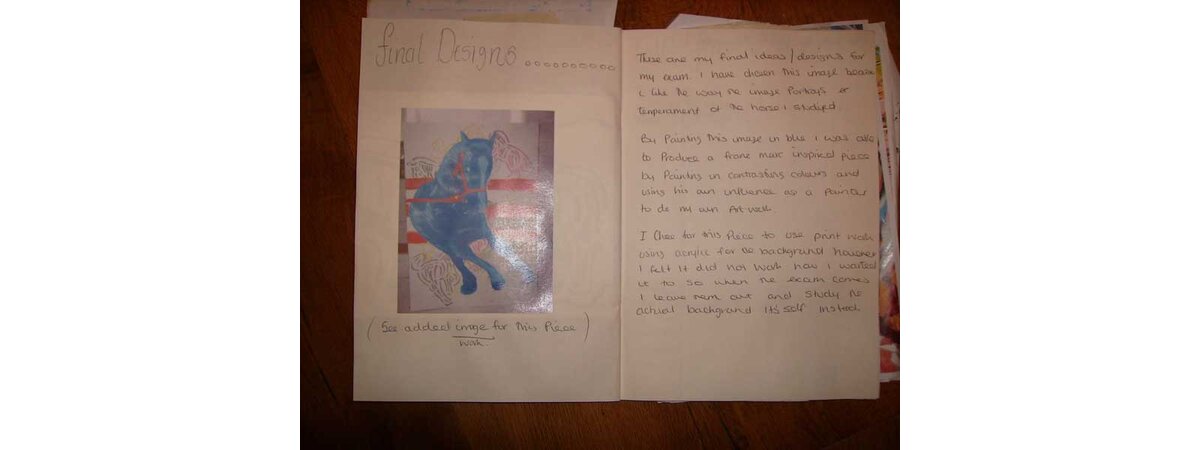 final Designs..........
(See added image for this Piece)
work.
These are my final ideas/designs for
my exam. I have chosen this image becase
i like the way the image Portays
temperament of the horse i studyed.
By Painting this image in blue i was able
to Produce a franc marc inspired piece
by Painting in contrasting colours and
using his own influence as a Painter
to do my own Art work
I for this Piece to use print work
using acrylic for the background however
I felt it did not work how i wanted
it to so when the exam comes
I leave them out and study the
actual background its self instead.